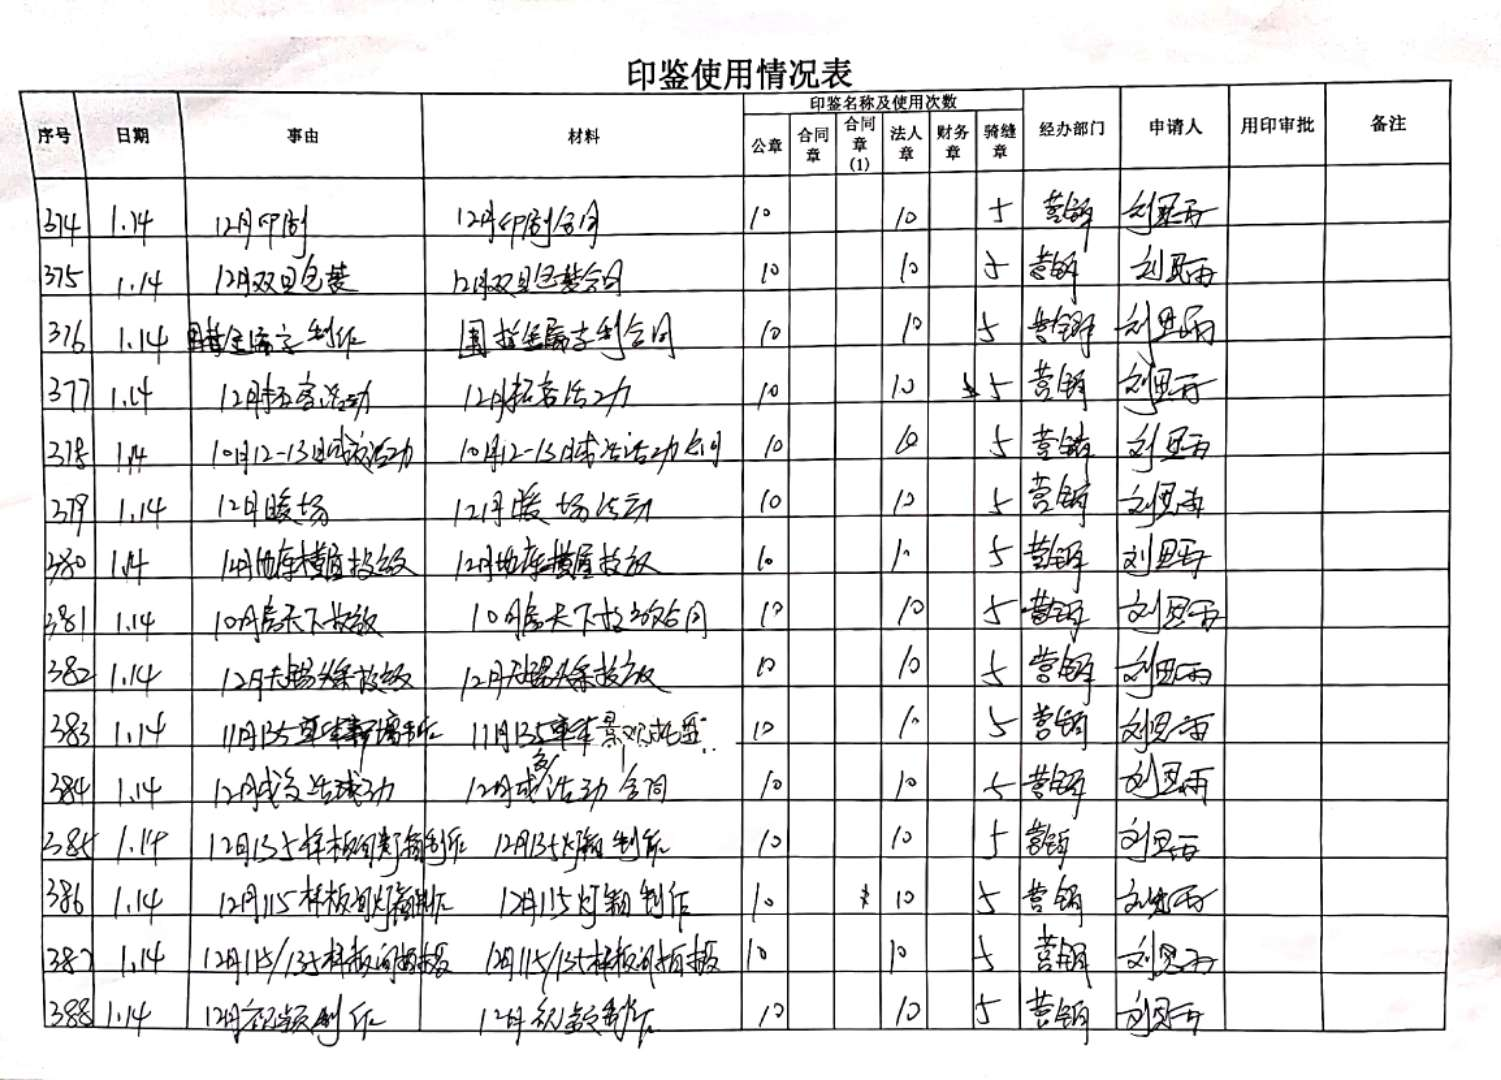 印鉴使用情况表
序号 日期 事由 材料 印鉴名称及使用次数 经办部门 申请人 用印审批 备注
公章 合同章 合同章(1) 法人章 财务章 骑缝章
374 1.14 12月印刷 12月印刷合同 10 10 5 营销 刘思雨
375 1.14 12月双旦包装 12月双旦包装合同 10 10 5 营销 刘思雨
376 1.14 围挡金属字制作 围挡金属字制合同 10 10 5 营销 刘思雨
377 1.14 12月拓客活动 12月拓客活动 10 10 5 营销 刘思雨
378 1.14 10月12-13日活动 10月12-13日活动合同 10 10 5 营销 刘思雨
379 1.14 12月暖场 12月暖场活动 10 10 5 营销 刘思雨
380 1.14 12月地库横屋投放 10 10 5 营销 刘思雨
381 1.14 10月房天下投放 10月房天下投放合同 10 10 5 营销 刘思雨
382 1.14 12月无锡头条投放 12月无锡头条投放 10 10 5 营销 刘思雨
383 1.14 11月135 11月135 景观 10 10 5 营销 刘思雨
384 1.14 12月成交活动 12月成交活动合同 10 10 5 营销 刘思雨
385 1.14 12月135样板间灯箱制作 12月135灯箱制作 10 10 5 营销 刘思雨
386 1.14 12月115样板间灯箱制作 12月115灯箱制作 10 10 5 营销 刘思雨
387 1.14 12月115/135样板间拍摄 12月115/135样板间拍摄 10 10 5 营销 刘思雨
388 1.14 12月视频制作 12月视频制作 10 10 5 营销 刘思雨